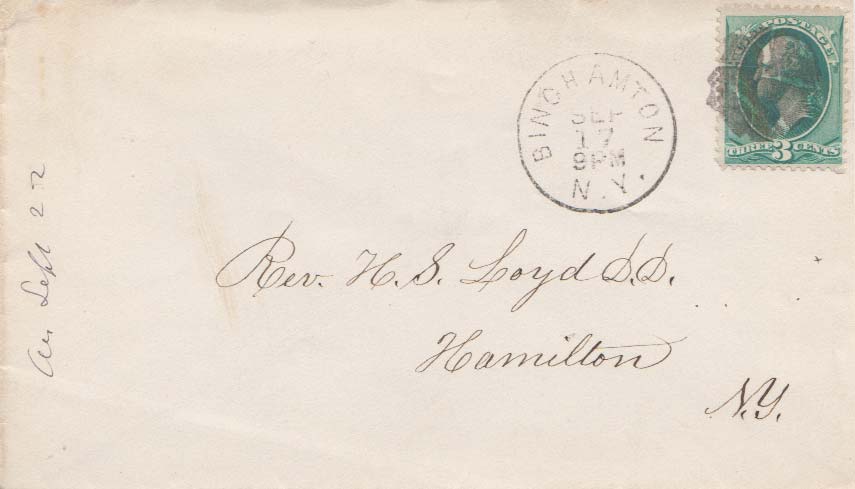 POSTAGE
THREE 3 CENTS
BINGHAMTON
SEP
17
9PM
N.Y.
Rev. H. S. Loyd D.D.
Hamilton
N.Y.
An Sept 22